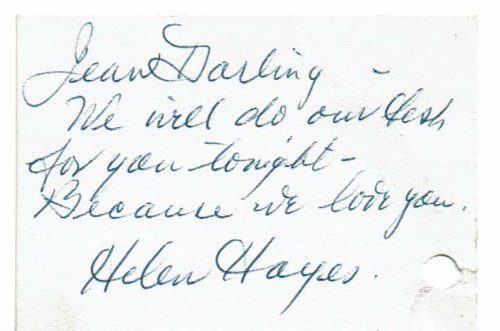 Jean Darling –
We will do our best
for you tonight –
Because we love you.
Helen Hayes.